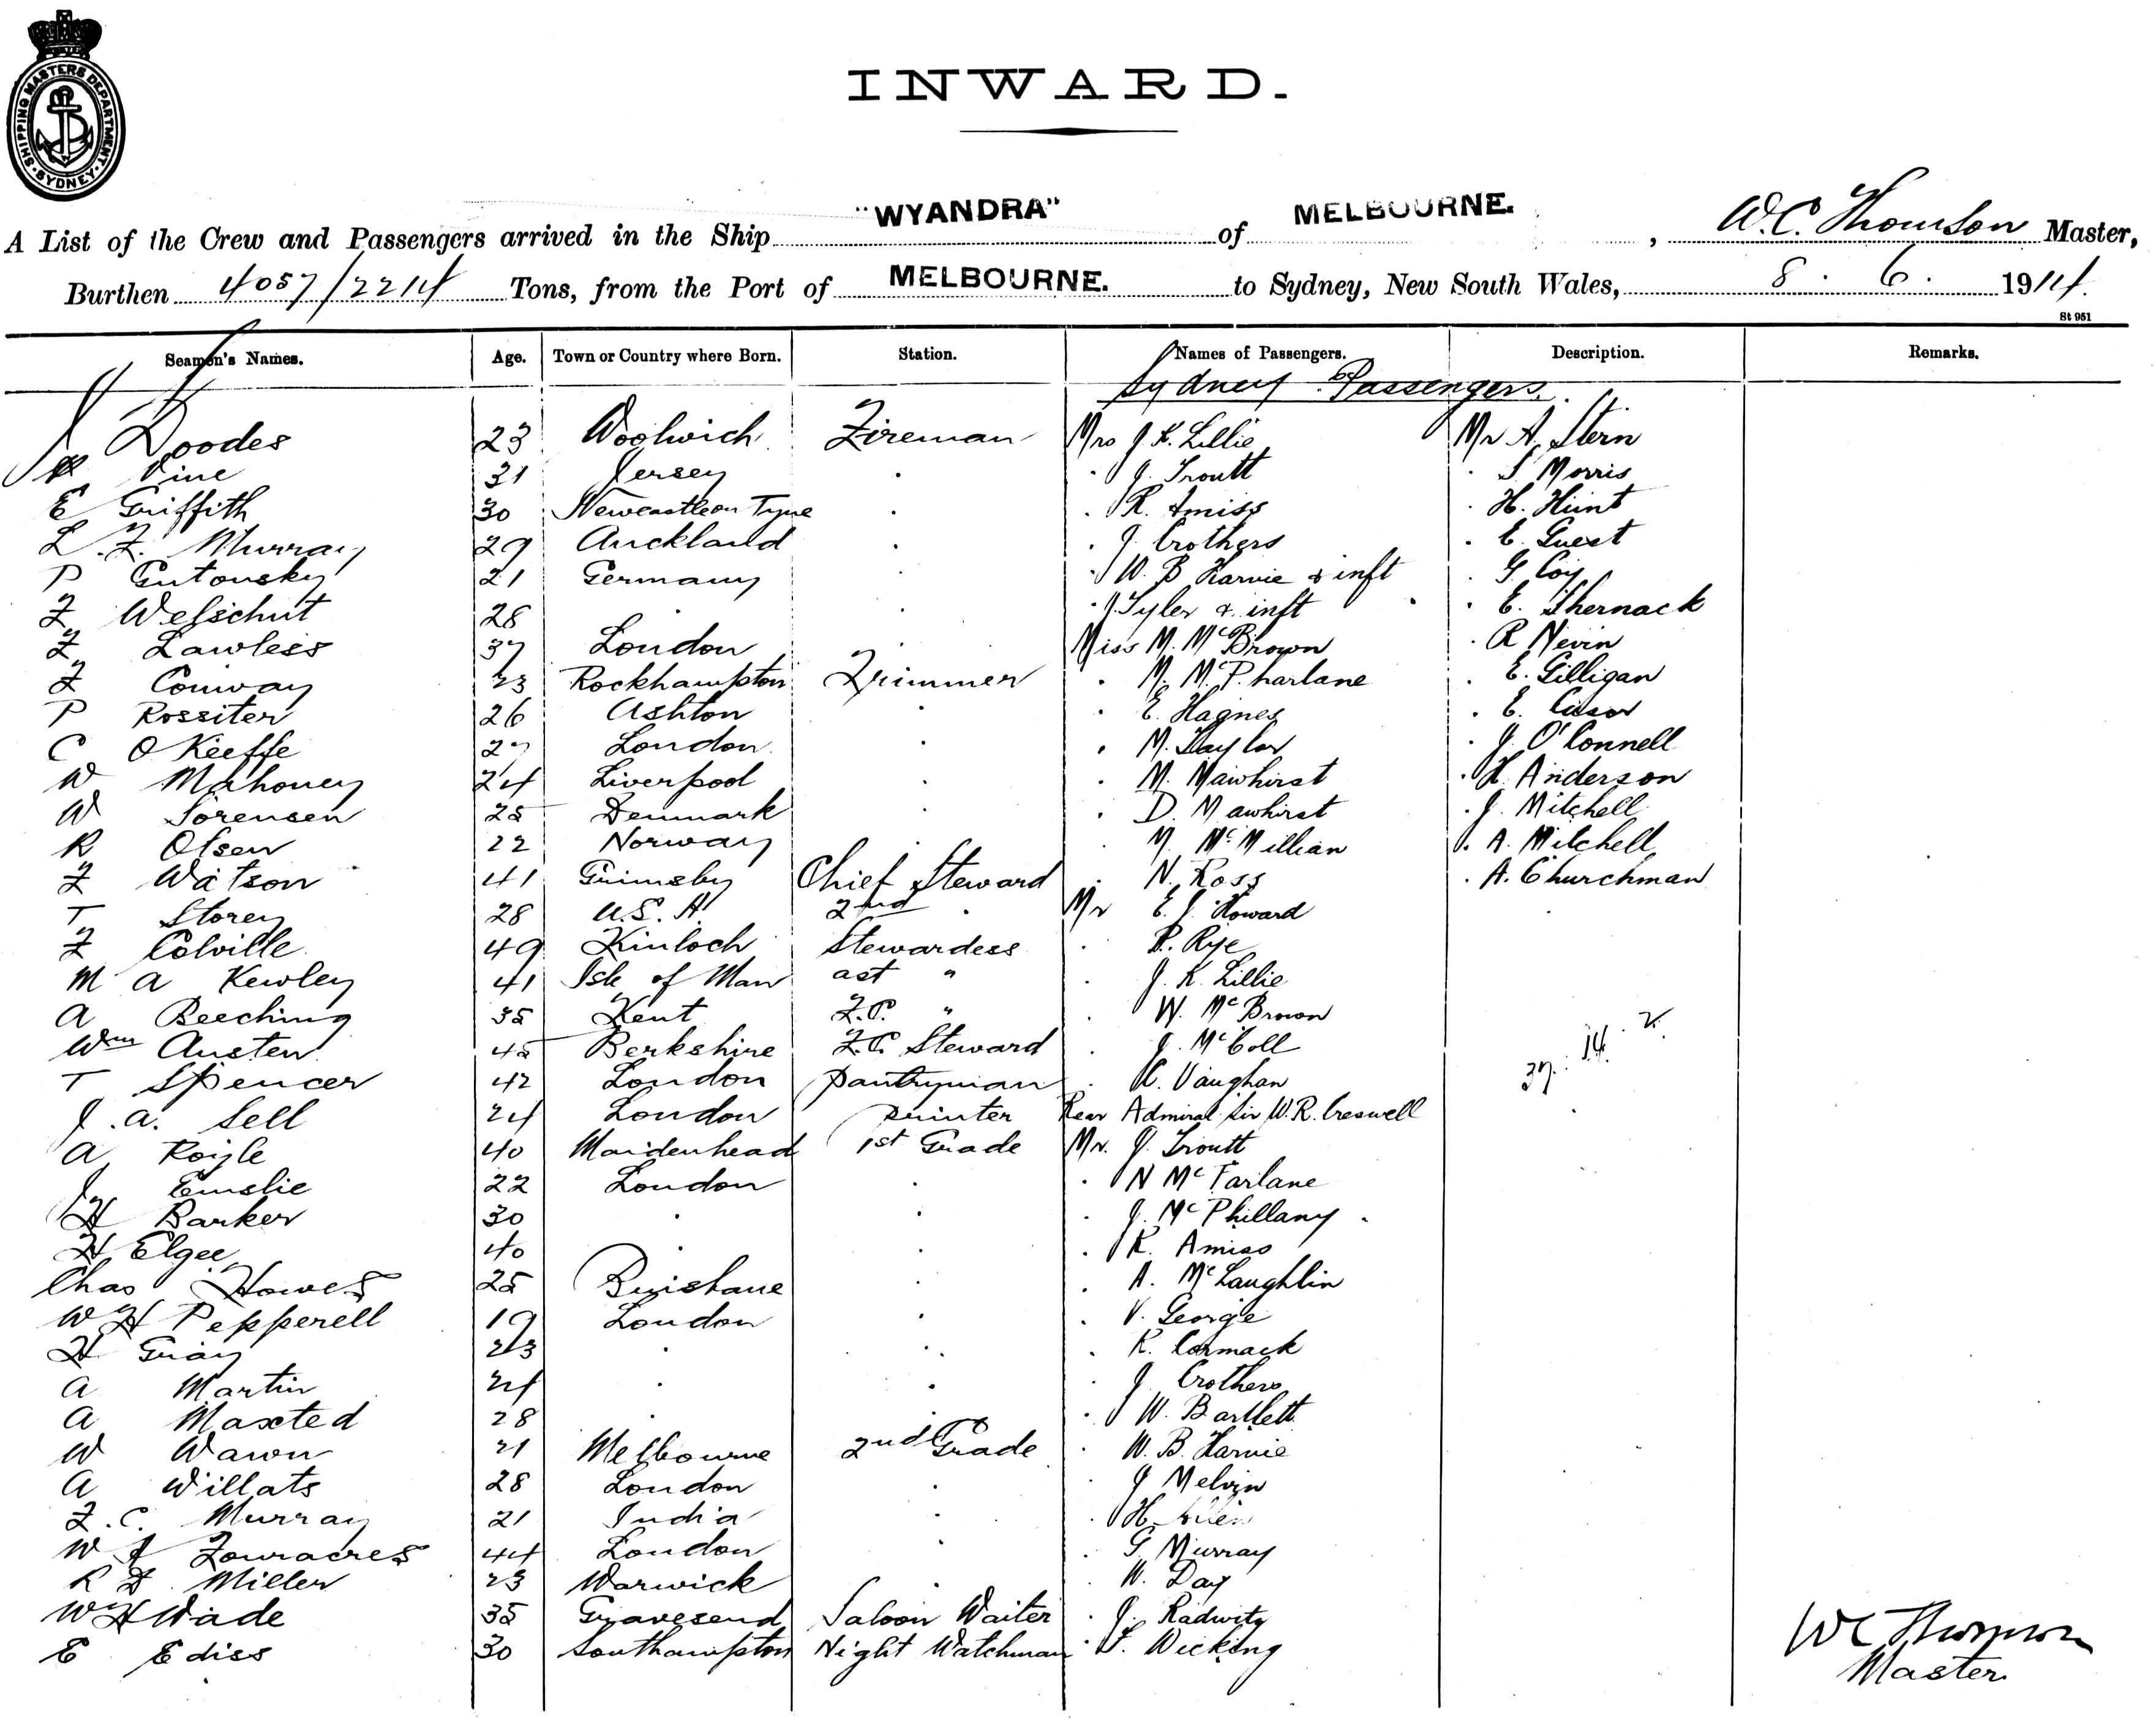 SHIPPING MASTERS DEPARTMENT. SYDNEY.
INWARD.
A List of the Crew and Passengers arrived in the Ship "WYANDRA" of MELBOURNE. , W. C. Thomson Master,
Burthen 4057/2214 Tons, from the Port of MELBOURNE. to Sydney, New South Wales, 8. 6. 1914.
St 951
Seamen's Names. Age. Town or Country where Born. Station. Names of Passengers. Description. Remarks.
Sydney Passengers.
Doodes 23 Woolwich Fireman Mrs J. K. Lillie Mr A. Stern
Vine 31 Jersey . . J. Troutt . S Morris
E Griffith 30 Newcastle on Tyne . . R. Amiss . H. Hunt
L. F. Murray 29 Auckland . . J. Crothers . E. Guest
P Gutousky 21 Germany . . W. B Harvie & inft . G. Coy
F Welschut 28 . . J. Tyler & inft . E. Shernack
F Lawless 37 London . Miss M. McBrown . R Nevin
F Conway 23 Rockhampton Trimmer . M. McPharlane . E. Gilligan
P Rossiter 26 Ashton . . E. Hagnes . E.
C O'Keeffe 27 London . . M. Taylor . J. O'Connell
W Mahoney 24 Liverpool . . M. Mawhirst . H. Anderson
W Sorensen 25 Denmark . . D. Mawhirst . J. Mitchell
R Olsen 22 Norway . McMillian . A. Mitchell
F Watson 41 Grimsby Chief Steward . N. Ross . A. Churchman
T Storey 28 U.S.A. 2nd . Mr E. J. Howard
F Colville 49 Kinloch Stewardess . R. Rye
M A Kewley 41 Isle of Man ast " . J. K. Lillie
A Beeching 35 Kent F.C. " . W. McBrown
Wm Austen 45 Berkshire F.C. Steward . J. McColl
T Spencer 42 London Pantryman . C. Vaughan 37. 14. 2.
J. A. Sell 24 London Printer Rear Admiral Sir W. R. Creswell
A Royle 40 Maidenhead 1st Grade Mr. J. Troutt
J Emslie 22 London . . N McFarlane
H Barker 30 . . . J. McPhillany
H Elgee 40 . . . R. Amiss
Chas Howes 25 Brisbane . . A. McLaughlin
W H Pepperell 19 London . V. George
H Gray 23 . . . R. Cormack
A Martin 24 . . . J. Crothers
A Maxted 28 . . W. Bartlett
W Wawn 21 Melbourne 2nd Grade . W. B. Harvie
A Willats 28 London . . J Melvin
F. C. Murray 21 India . . H.
W J Fouracres 44 London . . G. Murray
R D Miller 23 Warwick . W. Day
W H Wade 35 Gravesend Saloon Waiter . J. Radwitz
E Ediss 30 Southampton Night Watchman . F. Wicking
W C Thomson
Master